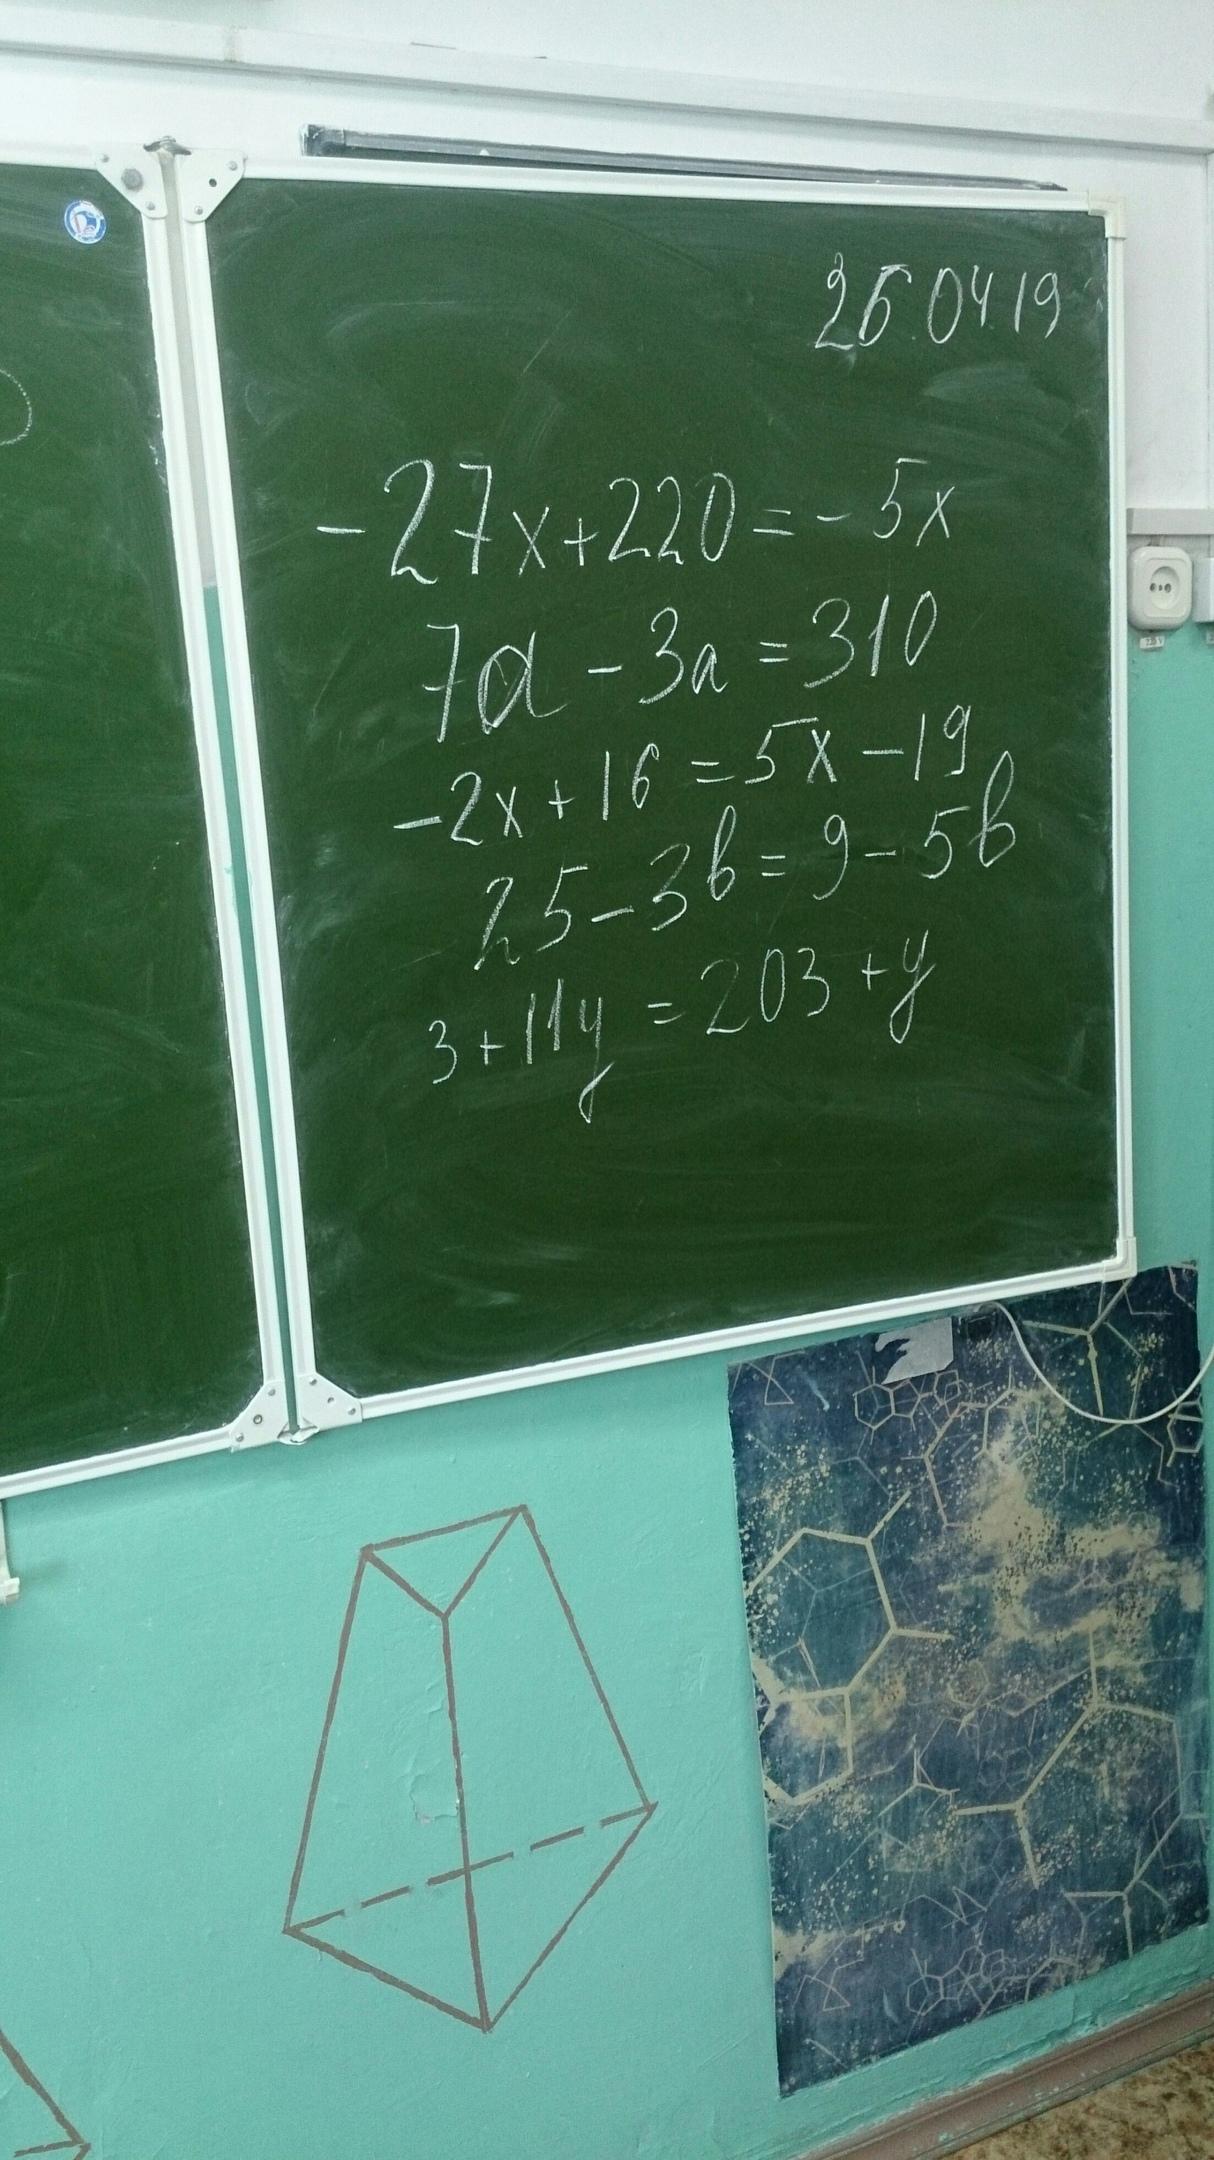 26.04.19
-27x+220=-5x
7a-3a=310
-2x+16=5x-19
25-3b=9-5b
3+11y=203+y